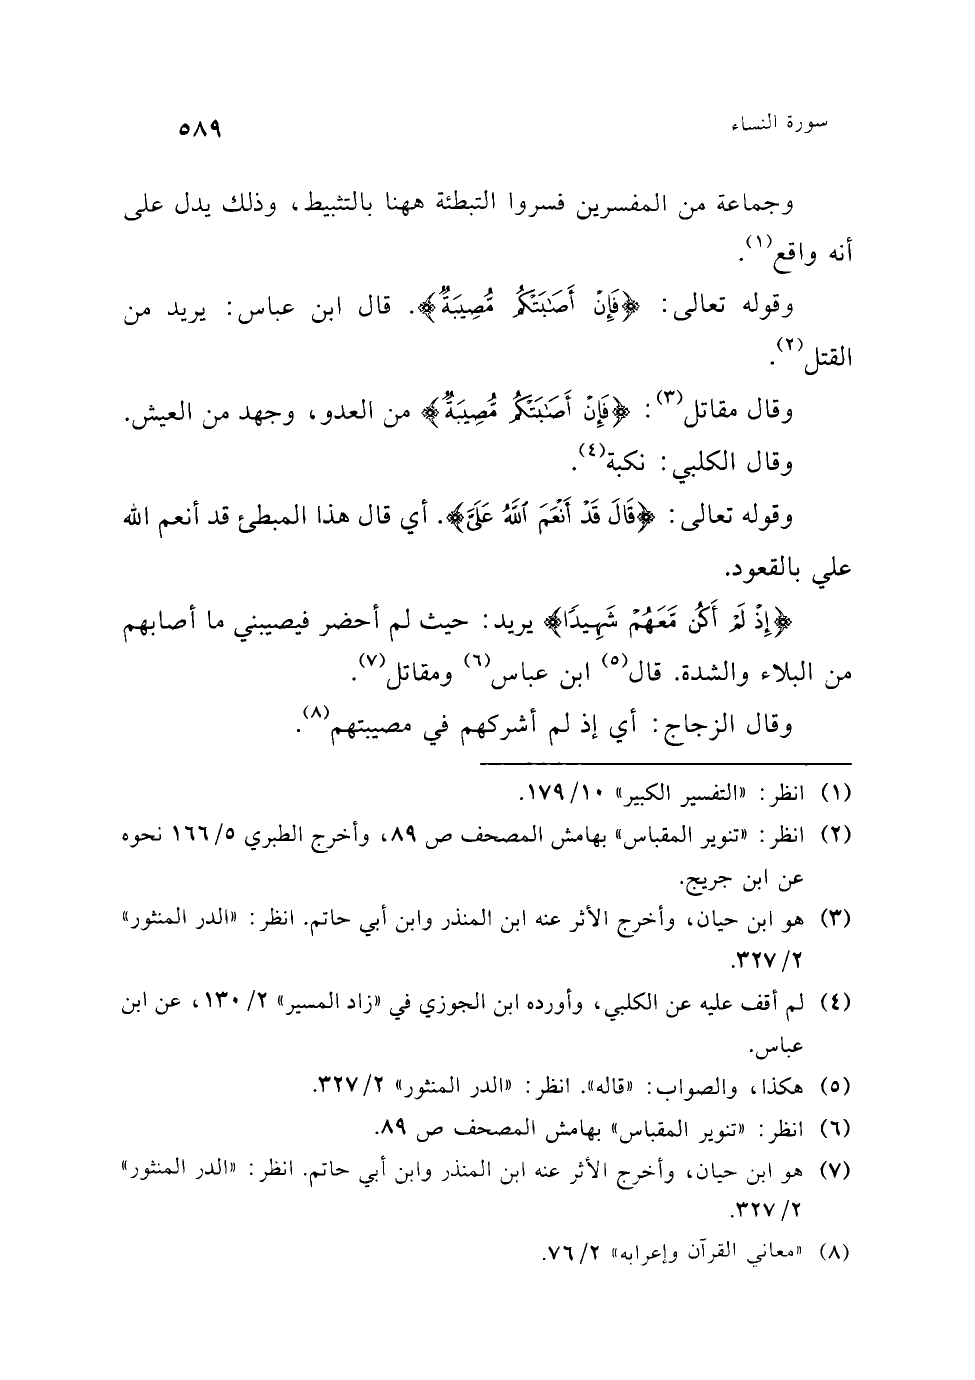 سورة النساء ٥٨٩
وجماعة من المفسرين فسروا التبطئة ههنا بالتثبيط، وذلك يدل على
أنه واقع(١).
وقوله تعالى: ﴿فَإِنْ أَصَٰبَتْكُم مُّصِيبَةٌ﴾. قال ابن عباس: يريد من
القتل(٢).
وقال مقاتل(٣): ﴿فَإِنْ أَصَٰبَتْكُم مُّصِيبَةٌ﴾ من العدو، وجهد من العيش.
وقال الكلبي: نكبة(٤).
وقوله تعالى: ﴿قَالَ قَدْ أَنْعَمَ ٱللَّهُ عَلَىَّ﴾. أي قال هذا المبطئ قد أنعم الله
علي بالقعود.
﴿إِذْ لَمْ أَكُن مَّعَهُمْ شَهِيدًا﴾ يريد: حيث لم أحضر فيصيبني ما أصابهم
من البلاء والشدة. قال(٥) ابن عباس(٦) ومقاتل(٧).
وقال الزجاج: أي إذ لم أشركهم في مصيبتهم(٨).
(١) انظر: «التفسير الكبير» ١٠/ ١٧٩.
(٢) انظر: «تنوير المقباس» بهامش المصحف ص ٨٩، وأخرج الطبري ٥/ ١٦٦ نحوه
عن ابن جريج.
(٣) هو ابن حيان، وأخرج الأثر عنه ابن المنذر وابن أبي حاتم. انظر: «الدر المنثور»
٢/ ٣٢٧.
(٤) لم أقف عليه عن الكلبي، وأورده ابن الجوزي في «زاد المسير» ٢/ ١٣٠، عن ابن
عباس.
(٥) هكذا، والصواب: «قاله». انظر: «الدر المنثور» ٢/ ٣٢٧.
(٦) انظر: «تنوير المقباس» بهامش المصحف ص ٨٩.
(٧) هو ابن حيان، وأخرج الأثر عنه ابن المنذر وابن أبي حاتم. انظر: «الدر المنثور»
٢/ ٣٢٧.
(٨) «معاني القرآن وإعرابه» ٢/ ٧٦.